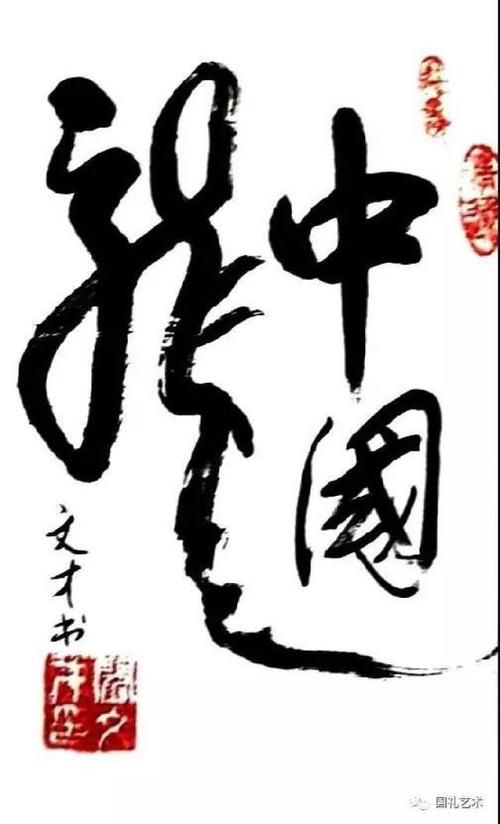 中國
龍
文才书
国礼艺术